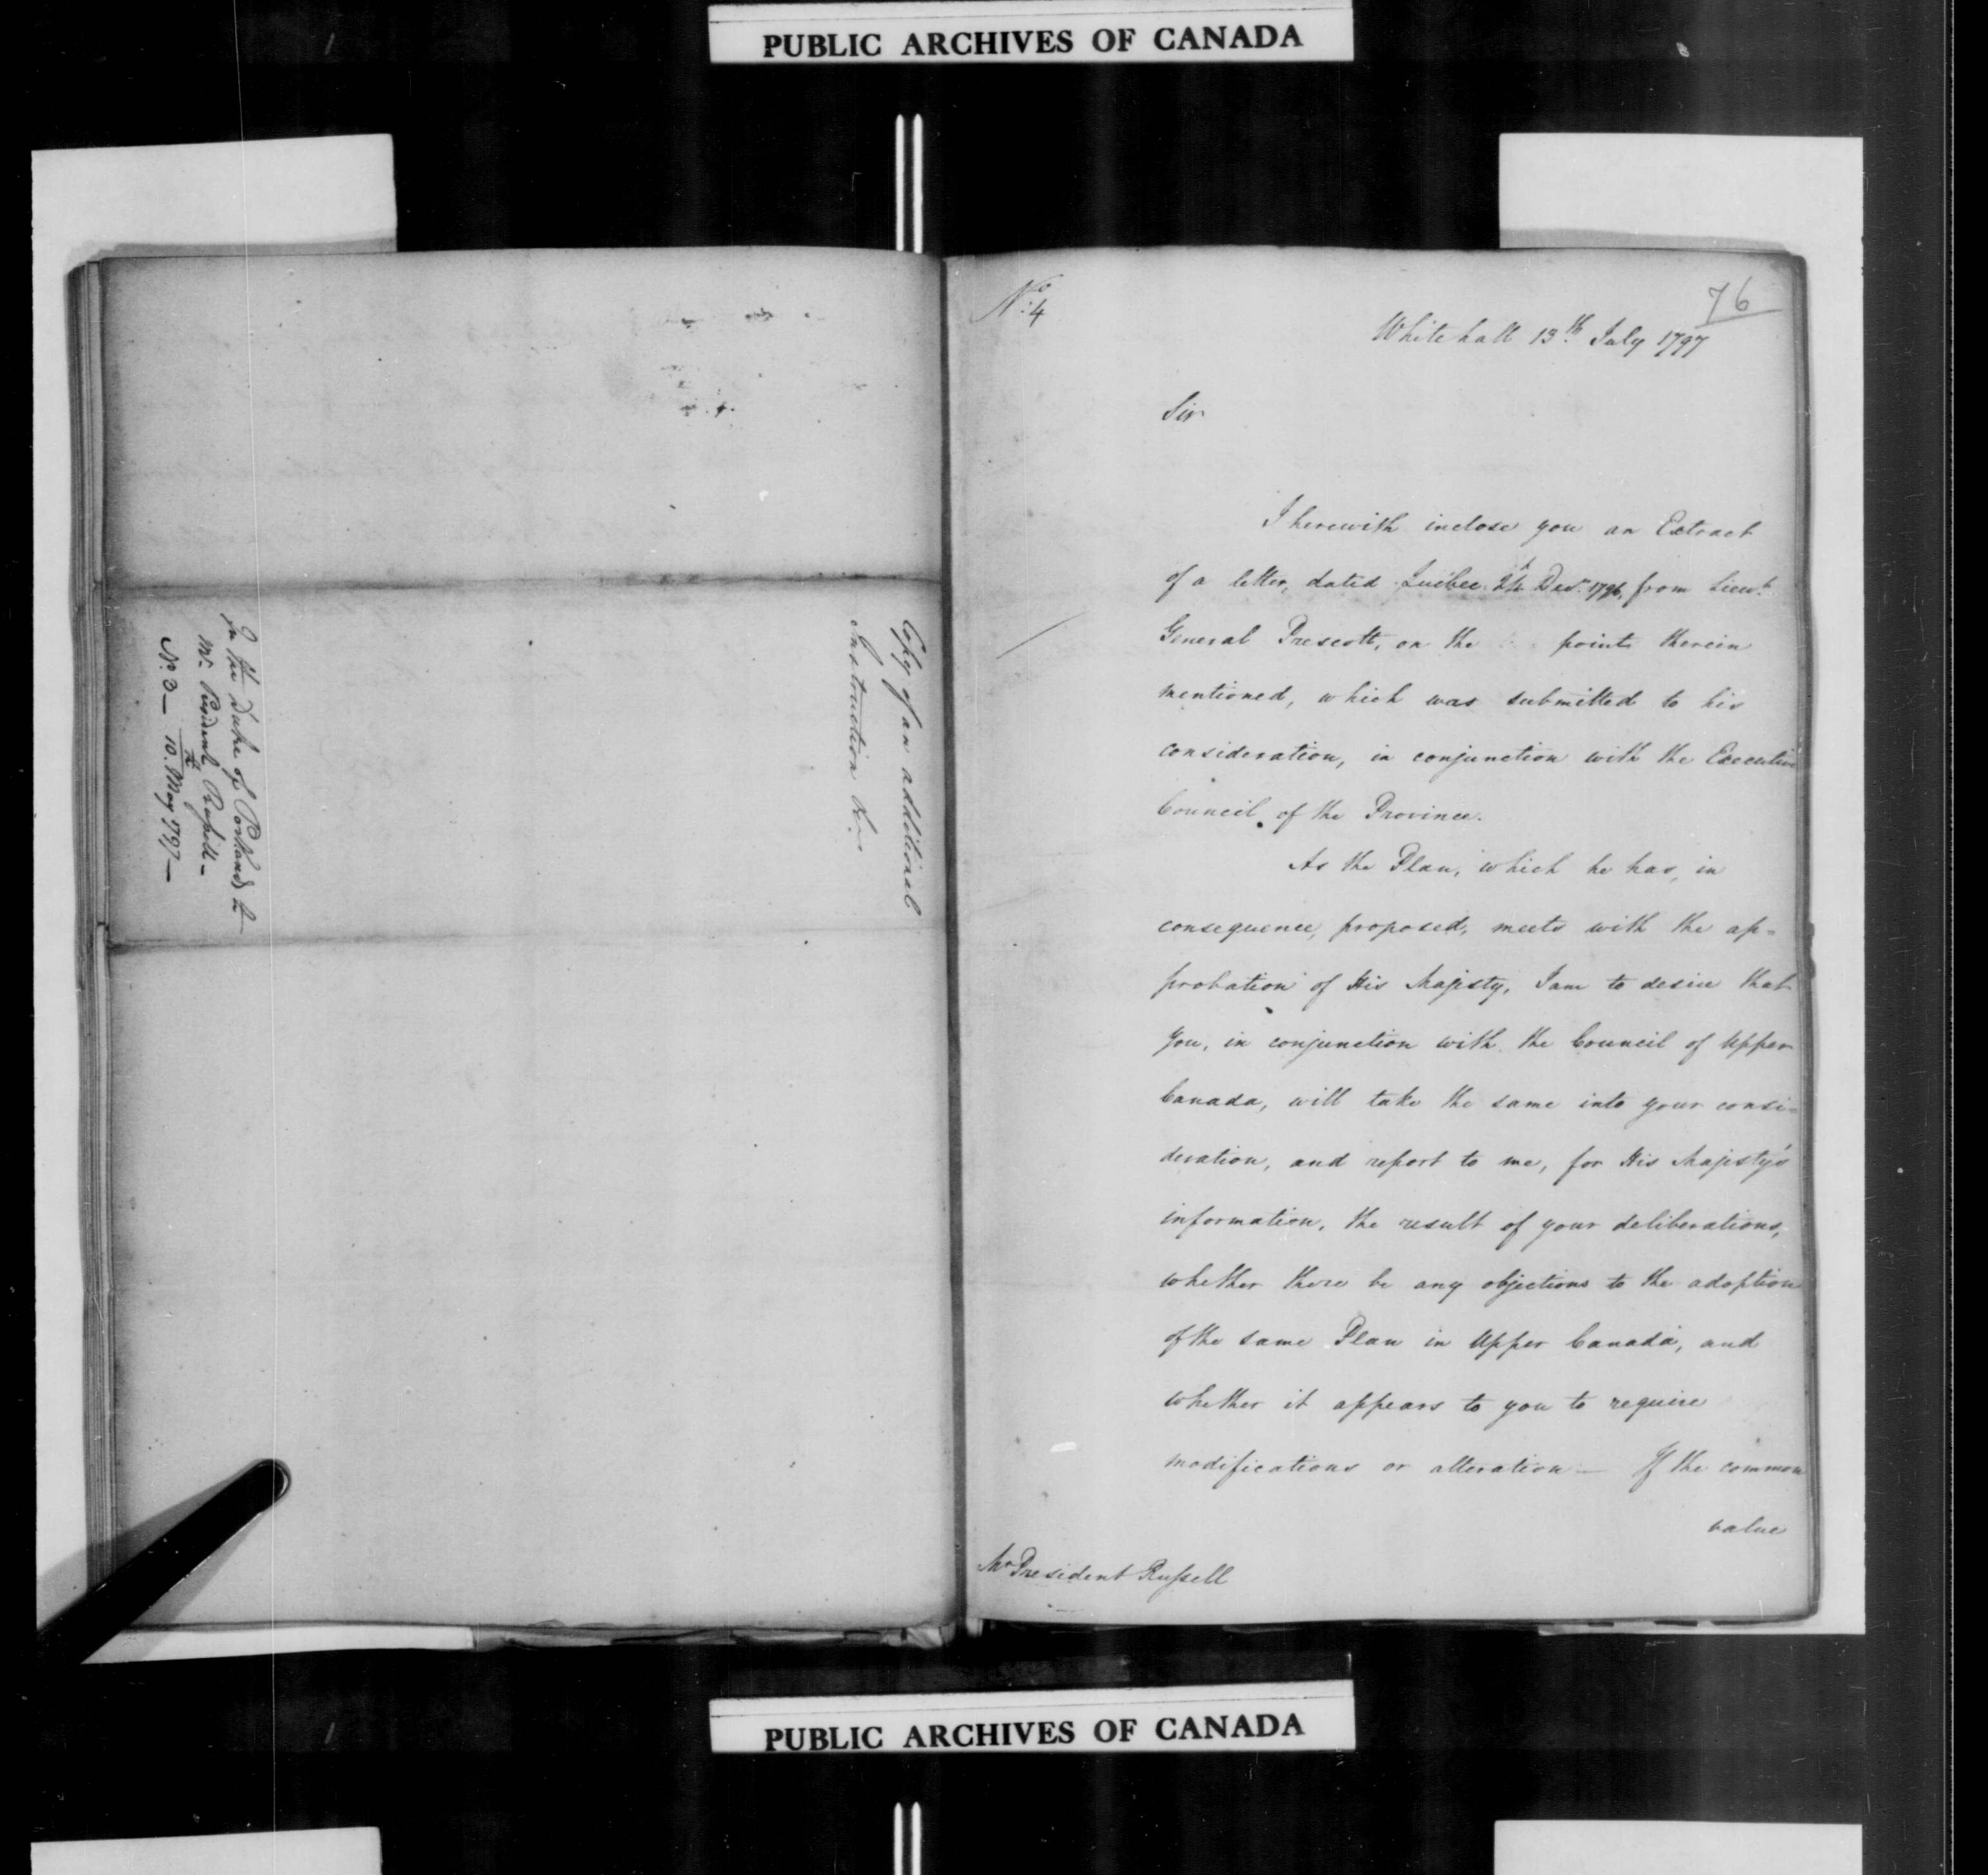 PUBLIC ARCHIVES OF CANADA
Copy of an additional
Instruction &c.
In the Duke of Portland's to
Mr. President Russell -
No. 3 - 10.th May 1797 -
No. 4
76
Whitehall 13th July 1797
Sir
I herewith inclose you an Extract
of a letter, dated Quebec Decr. 1796, from Lieut.
General Prescott, on the points therein
mentioned, which was submitted to his
consideration, in conjunction with the Executive
Council of the Province.
As the Plan, which he has, in
consequence, proposed, meets with the ap=
probation of His Majesty, I am to desire that
you, in conjunction with the Council of Upper
Canada, will take the same into your consi=
deration, and report to me, for His Majesty's
information, the result of your deliberations,
whether there be any objections to the adoption
of the same Plan in Upper Canada, and
whether it appears to you to require
modifications or alteration — If the common
value
Mr President Russell
PUBLIC ARCHIVES OF CANADA